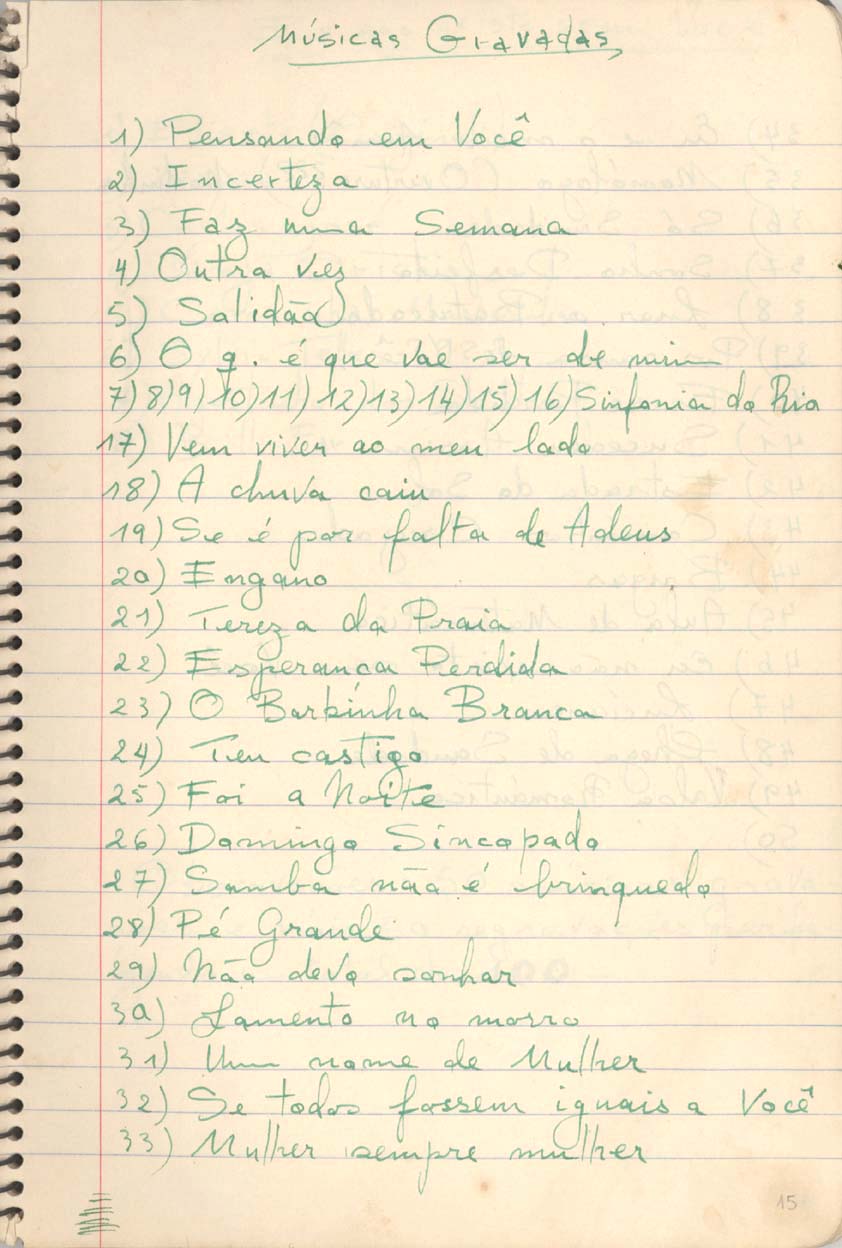 Músicas Gravadas
1) Pensando em Você
2) Incerteza
3) Faz uma Semana
4) Outra vez
5) Solidão
6) O q. é que vae ser de mim
7) 8) 9) 10) 11) 12) 13) 14) 15) 16) Sinfonia do Rio
17) Vem viver ao meu lado
18) A chuva caiu
19) Se é por falta de Adeus
20) Engano
21) Tereza da Praia
22) Esperança Perdida
23) O Barbinha Branca
24) Teu castigo
25) Foi a Noite
26) Domingo Sincopado
27) Samba não é brinquedo
28) Pé Grande
29) Não devo sonhar
30) Lamento no morro
31) Um nome de Mulher
32) Se todos fossem iguais a Você
33) Mulher sempre mulher
15